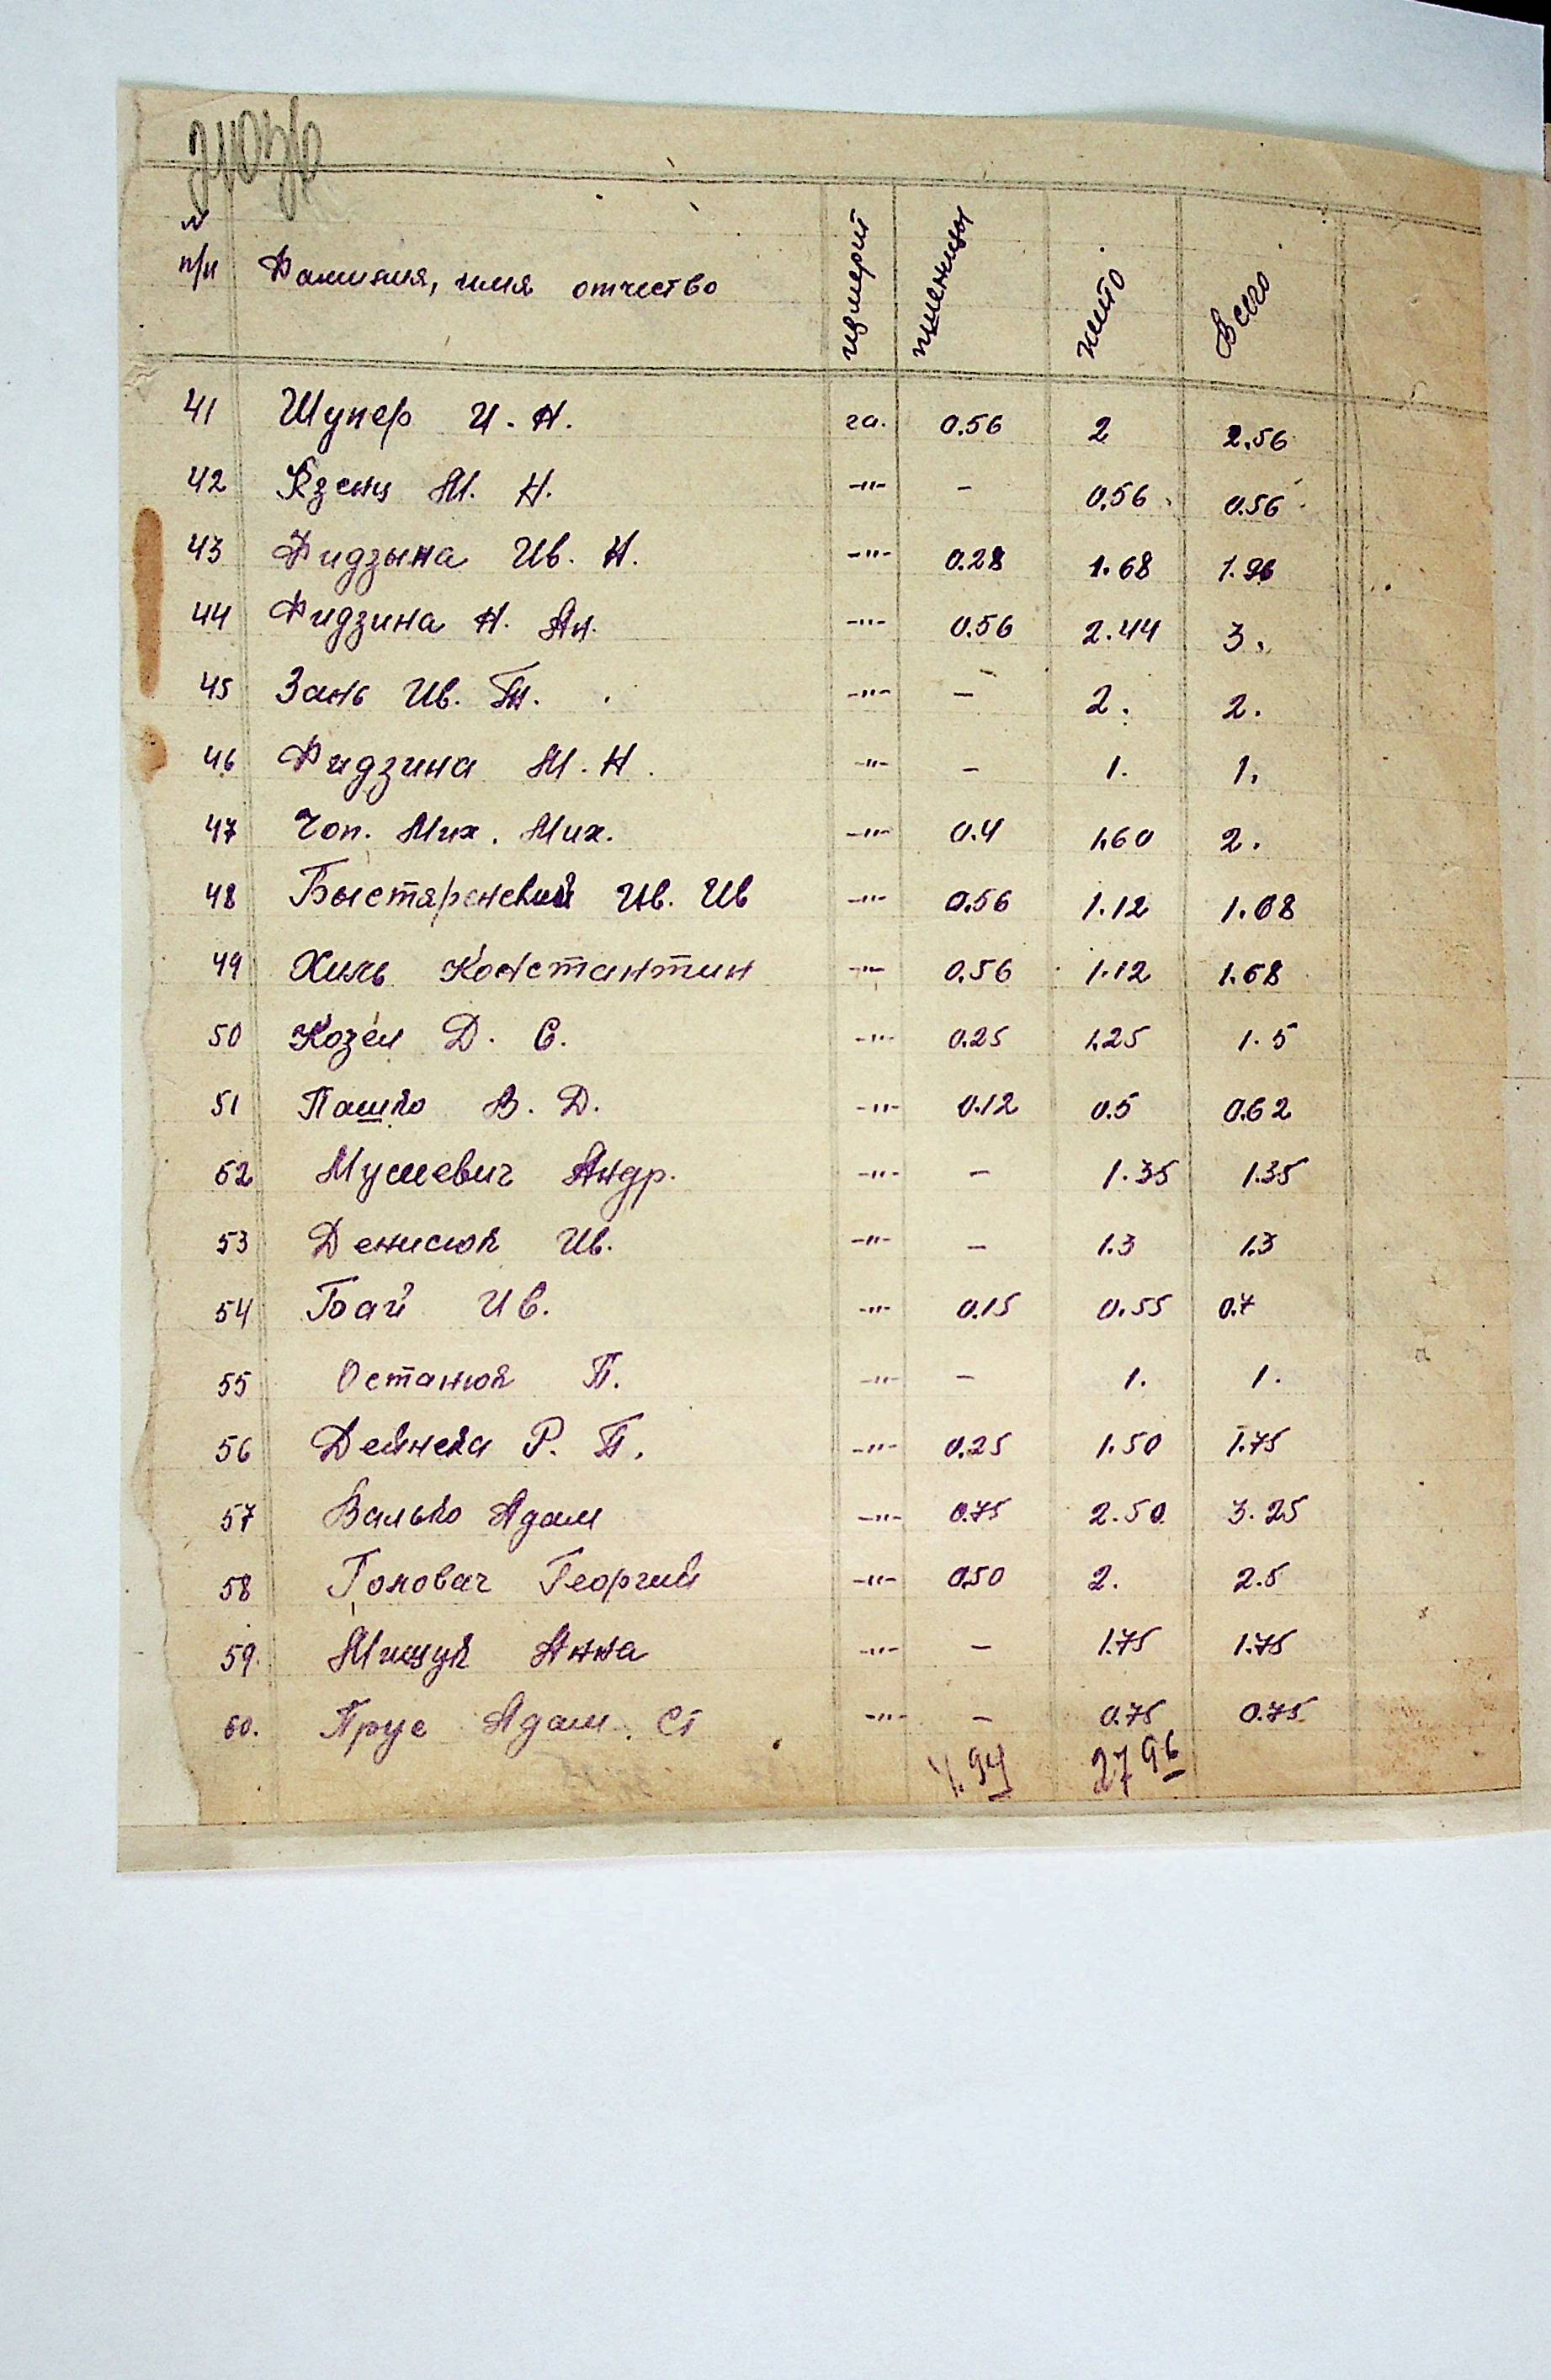 №
п/п Фамилия, имя отчество измерит пшеницы жито Всего
41 Шупер И. Н. га. 0.56 2 2.56
42 М. Н. -"- - 0.56 0.56
43 Фидзына Ив. Н. -"- 0.28 1.68 1.96
44 Фидзина Н. Ан. -"- 0.56 2.44 3.
45 Зань Ив. -"- - 2. 2.
46 Фидзина М. Н. -"- - 1. 1.
47 Чоп. Мих. Мих. -"- 0.4 1.60 2.
48 Ив. Ив -"- 0.56 1.12 1.68
49 Хиль Константин -"- 0.56 1.12 1.68
50 Козел Д. С. -"- 0.25 1.25 1.5
51 Пашко В. Д. -"- 0.12 0.5 0.62
52 Мушевич Андр. -"- - 1.35 1.35
53 Денисюк Ив. -"- - 1.3 1.3
54 Ив. -"- 0.15 0.55 0.7
55 Останюк П. -"- - 1. 1.
56 Дейнека Р. П. -"- 0.25 1.50 1.75
57 Валько Адам -"- 0.75 2.50 3.25
58 Головач Георгий -"- 0.50 2. 2.5
59. Мищук Анна -"- - 1.75 1.75
60. Прус Адам. Ст -"- - 0.75 0.75
4.94 27 96